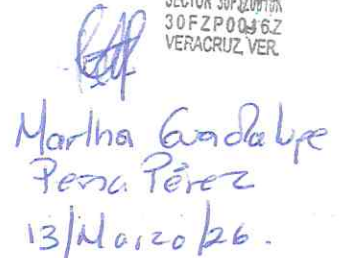 30FZP0096Z
VERACRUZ, VER.
Martha Guadalupe
Pérez
13/Marzo/26.